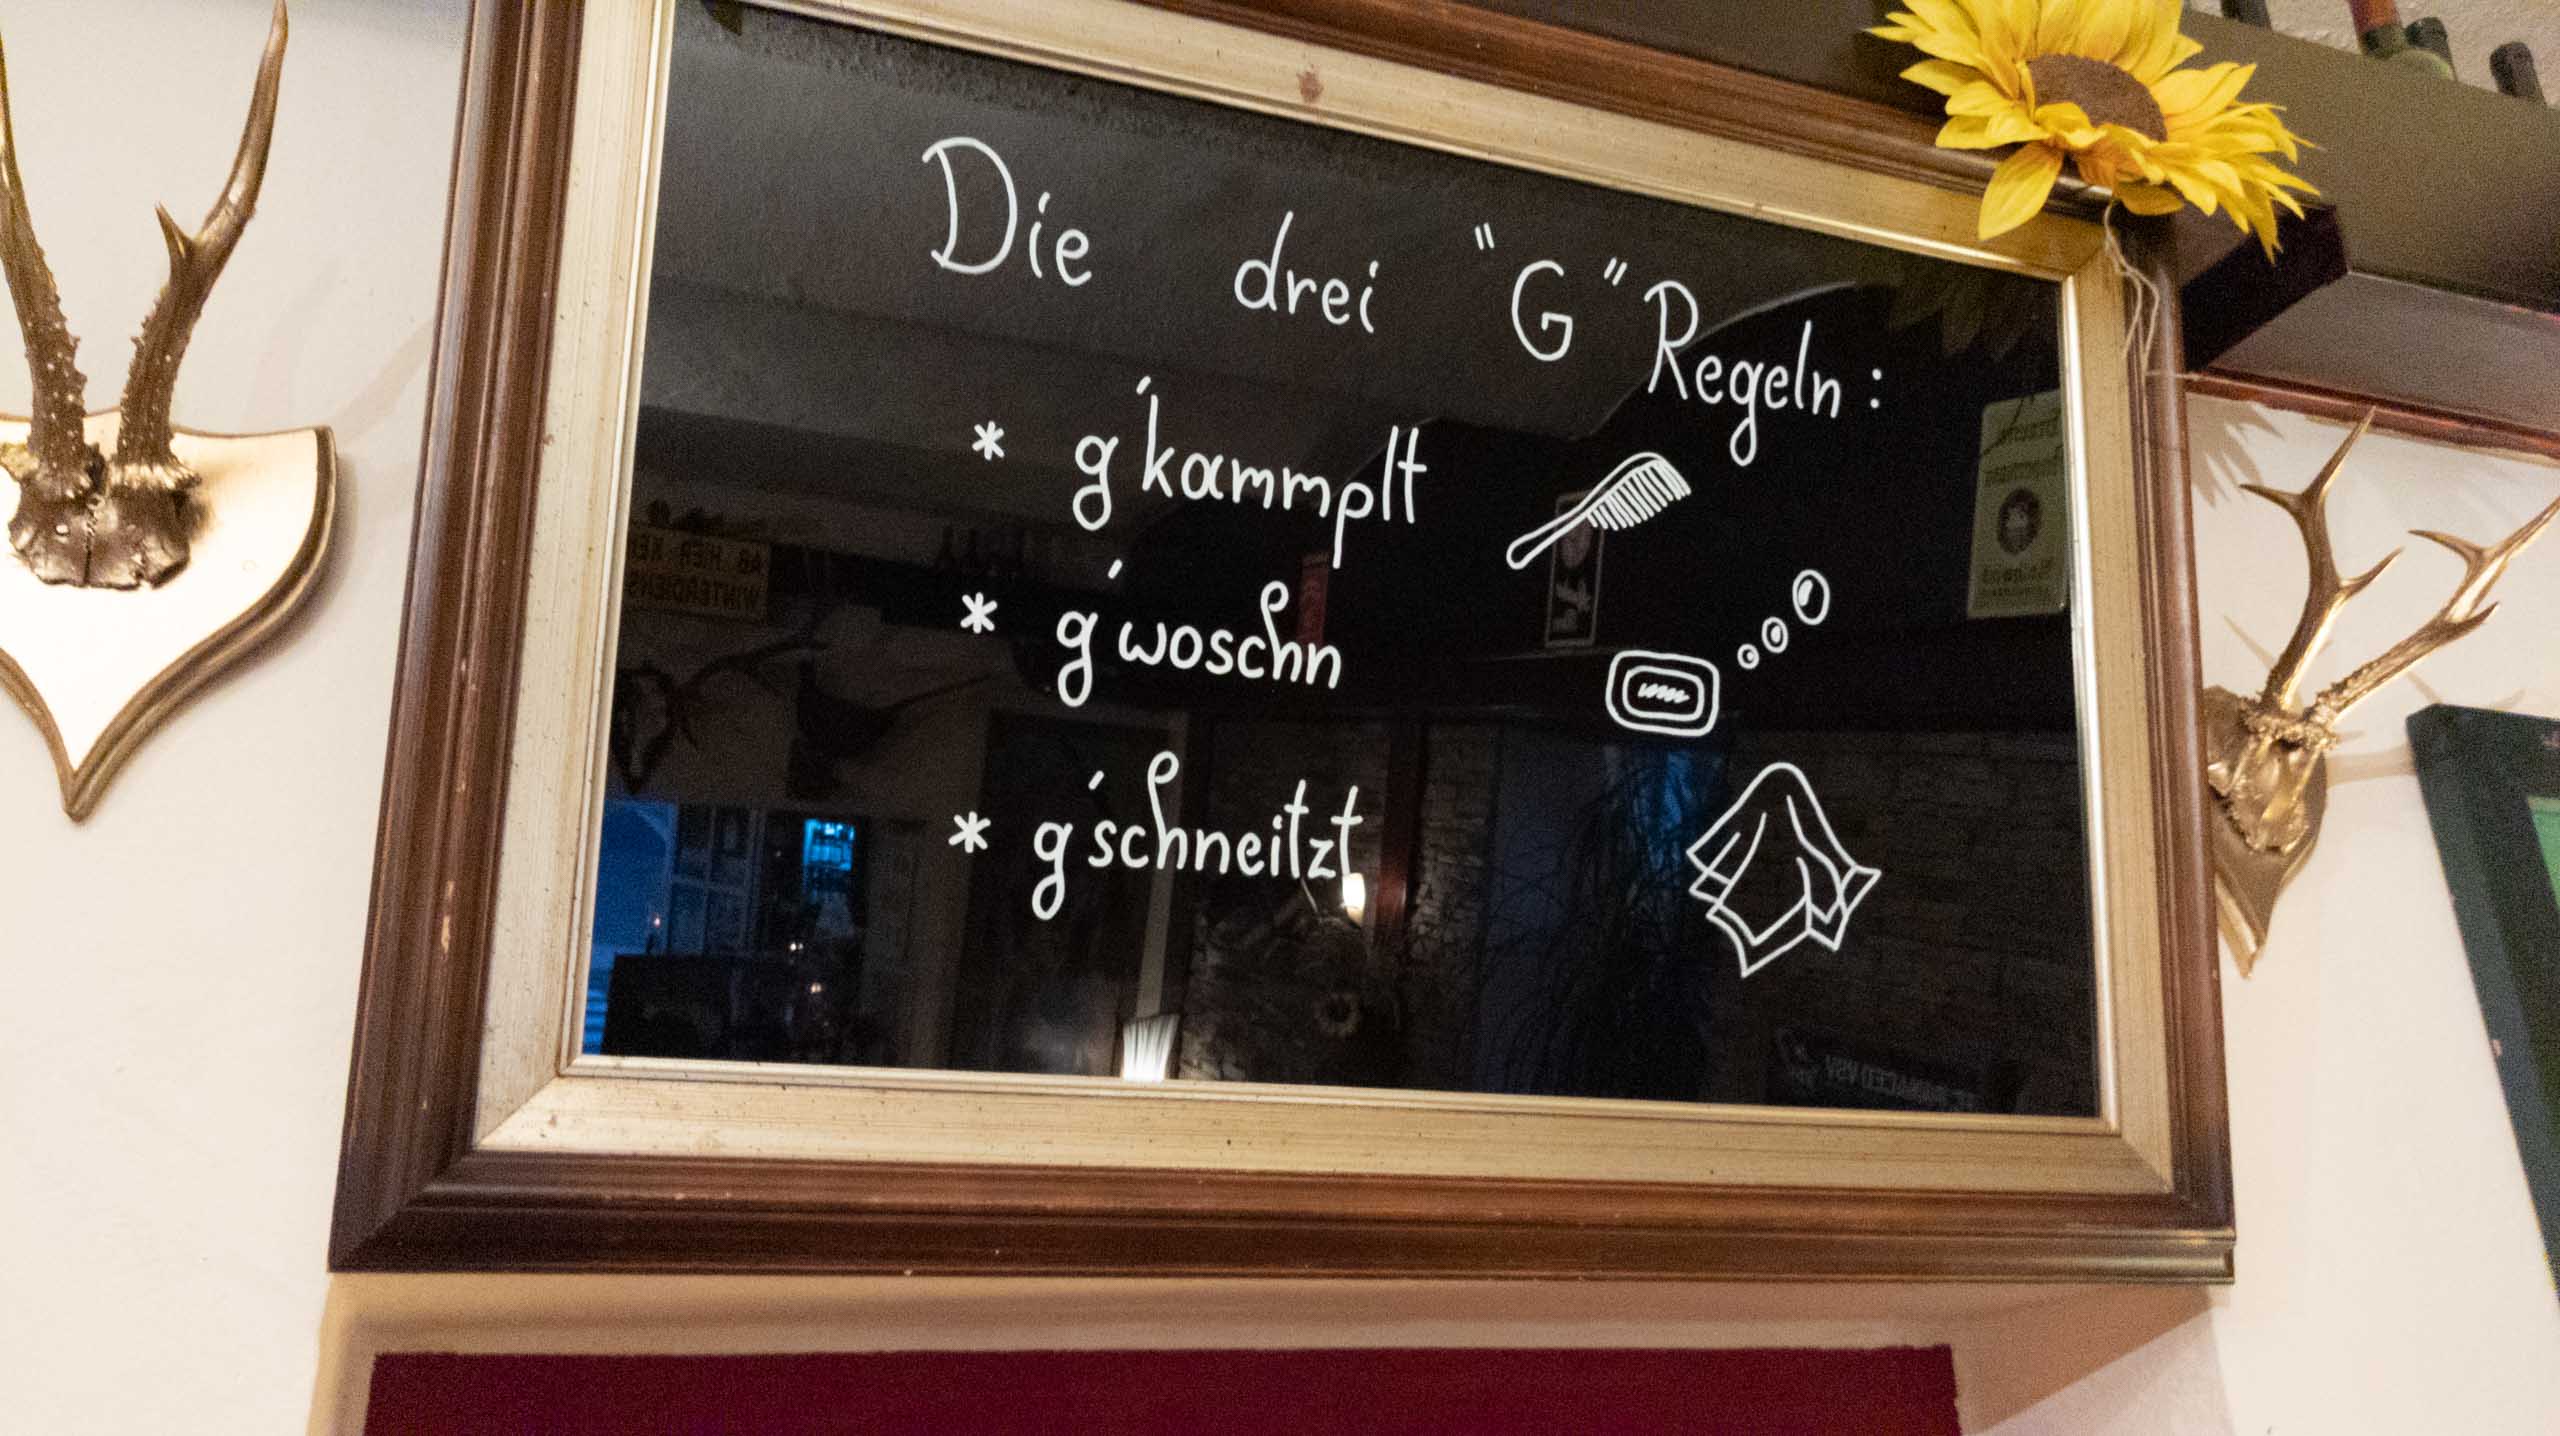 Die drei "G" Regeln:
* g'kammplt
* g'woschn
* g'schneitzt